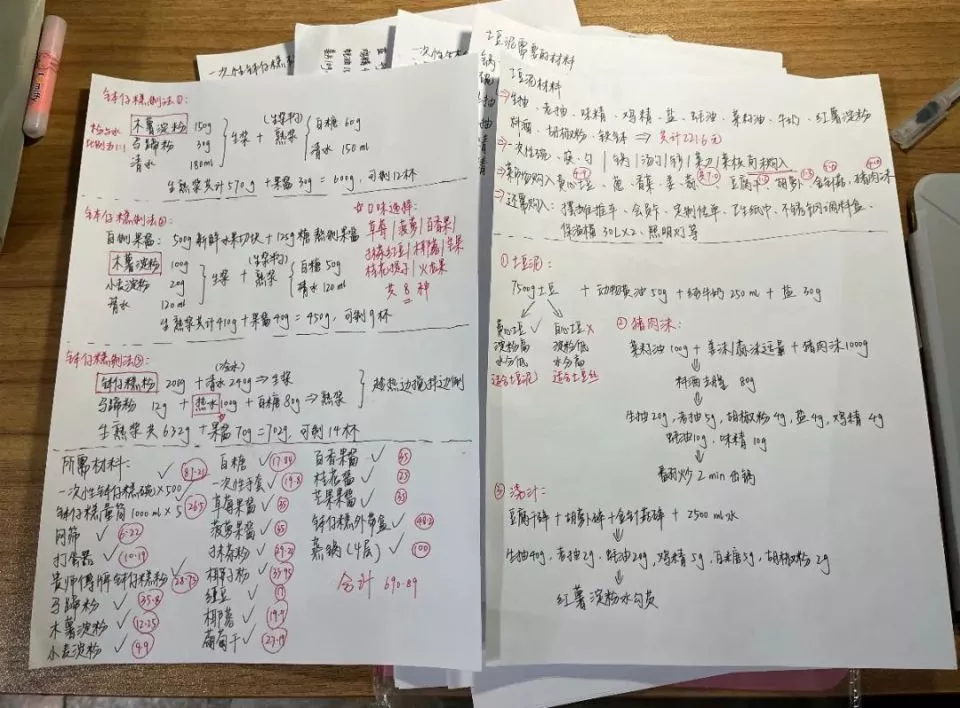 一次性钵仔糕
土豆泥需要的材料
钵仔糕制法①:
粉与水
比例为1:1
木薯淀粉 150g
马蹄粉 30g
清水 180ml
生浆 + 熟浆
白糖 60g
清水 150ml
生熟浆共计570g + 果酱30g = 600g,可制12杯
钵仔糕制法②:
自制果酱: 500g新鲜水果切块 + 125g糖 熬制果酱
木薯淀粉 100g
小麦淀粉 20g
清水 120ml
生浆 + 熟浆
白糖 50g
清水 120ml
生熟浆共计410g + 果酱40g = 450g,可制9杯
☆口味选择:
草莓|菠萝|百香果|
抹茶红豆|椰蓉|芒果
桂花|火龙果
共8种
钵仔糕制法③:
(冷水)
钵仔糕粉 200g + 清水 240g ⇒ 生浆
马蹄粉 12g + 热水100g + 白糖80g ⇒ 熟浆
生熟浆共632g + 果酱70g = 702g,可制14杯
所需材料:
一次性钵仔糕碗×500 ✓ 87.21
钵仔糕量筒1000ml×5 ✓
网筛 ✓ 6.22
打蛋器 ✓ 10.19
贵师傅牌钵仔糕粉 ✓ 28.75
马蹄粉 ✓ 35.8
木薯淀粉 ✓ 12.25
小麦淀粉 ✓ 49
白糖 ✓ 17.84
一次性手套 ✓ 19.8
草莓果酱 ✓ 35
菠萝果酱 ✓ 35
抹茶粉 ✓
椰子粉 ✓ 33.95
红豆 ✓ 17
椰蓉 ✓
葡萄干 ✓
百香果酱 ✓ 35
桂花酱 ✓ 23
芒果果酱 ✓ 35
钵仔糕外带盒 ✓ 48.2
蒸锅(4层) ✓ 100
合计 690.89
土豆泥材料
⇒生抽、老抽、味精、鸡精、盐、蚝油、菜籽油、牛奶、红薯淀粉
料酒、胡椒粉、 ⇒ 共计221.6元
⇒一次性碗、筷、勺|锅|汤勺
⇒菜市场购入黄心土豆、葱、香菜、姜、蒜、豆腐干、胡萝卜、金针菇、猪肉沫
⇒还需购入: 摆摊推车、会员卡、定制传单、卫生纸巾、不锈钢调料盒、
保温桶 30L×2、照明灯等
①土豆泥:
7500g土豆 + 动物黄油50g + 纯牛奶250ml + 盐30g
黄心土豆✓
淀粉高
水分低
适合土豆泥
白心土豆×
淀粉低
水分高
适合土豆丝
②猪肉沫:
菜籽油100g + 姜沫|蒜沫适量 + 猪肉沫1000g
料酒去腥 80g
生抽20g,老抽5g,胡椒粉4g,盐4g,鸡精4g
蚝油10g,味精10g
翻炒2min出锅
③汤汁:
豆腐干碎 + 胡萝卜碎 + 金针菇碎 + 2500ml水
生抽40g,老抽2g,蚝油20g,鸡精5g,白糖5g,胡椒粉2g
红薯淀粉水勾芡